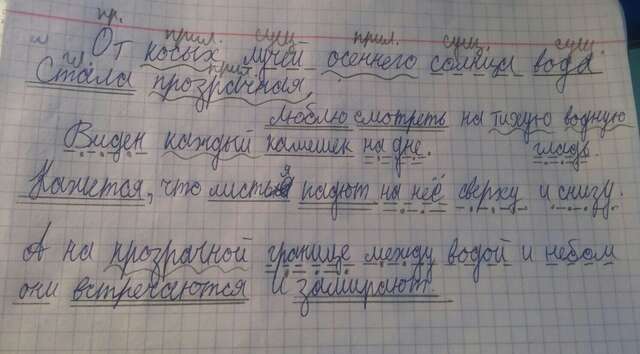 пр.
прил. сущ. прил. сущ. сущ.
От косых лучей осеннего солнца вода
гл. прил.
Стала прозрачная,
Люблю смотреть на тихую водную
Виден каждый камешек на дне. гладь.
Кажется, что листья падют на неё сверху и снизу.
А на прозрачной границе между водой и небом
они встречаются и замирают.